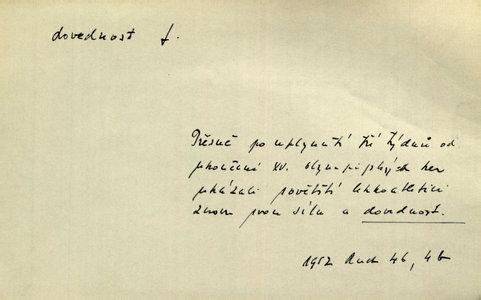 dovednost f.
Přesně po uplynutí tří týdnů od
ukončení XV. olympijských her
ukázali sovětští lehkoatleti
znovu svou sílu a dovednost.
1952 Ruch 46, 4b